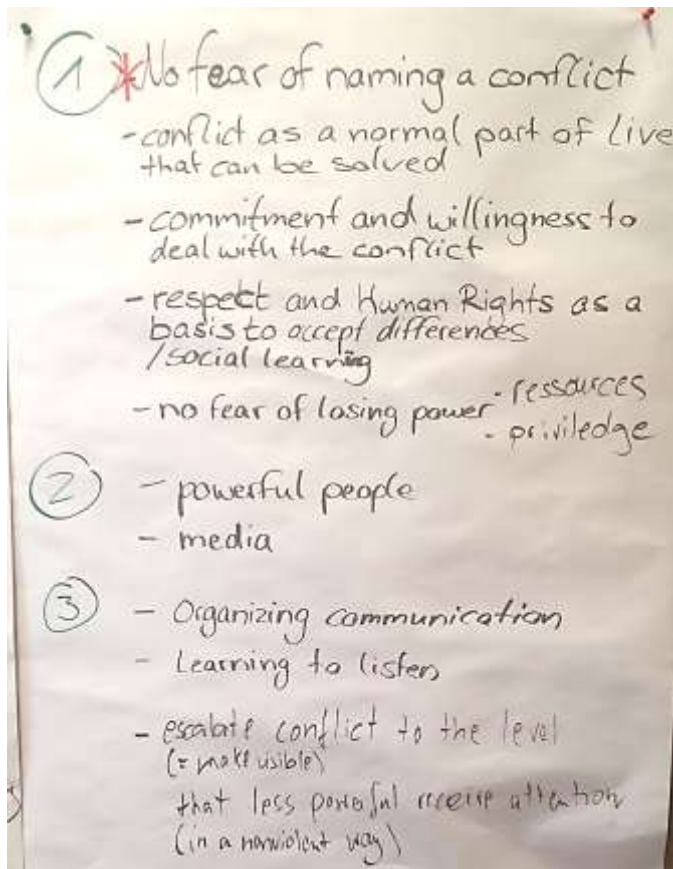 1 * No fear of naming a conflict
- conflict as a normal part of live
that can be solved
- commitment and willingness to
deal with the conflict
- respect and Human Rights as a
basis to accept differences
/social learning
- no fear of losing power - ressources
- priviledge
2 - powerful people
- media
3 - Organizing communication
- Learning to listen
- escalate conflict to the level
(= make visible)
that less powerful receive attention
(in a nonviolent way)